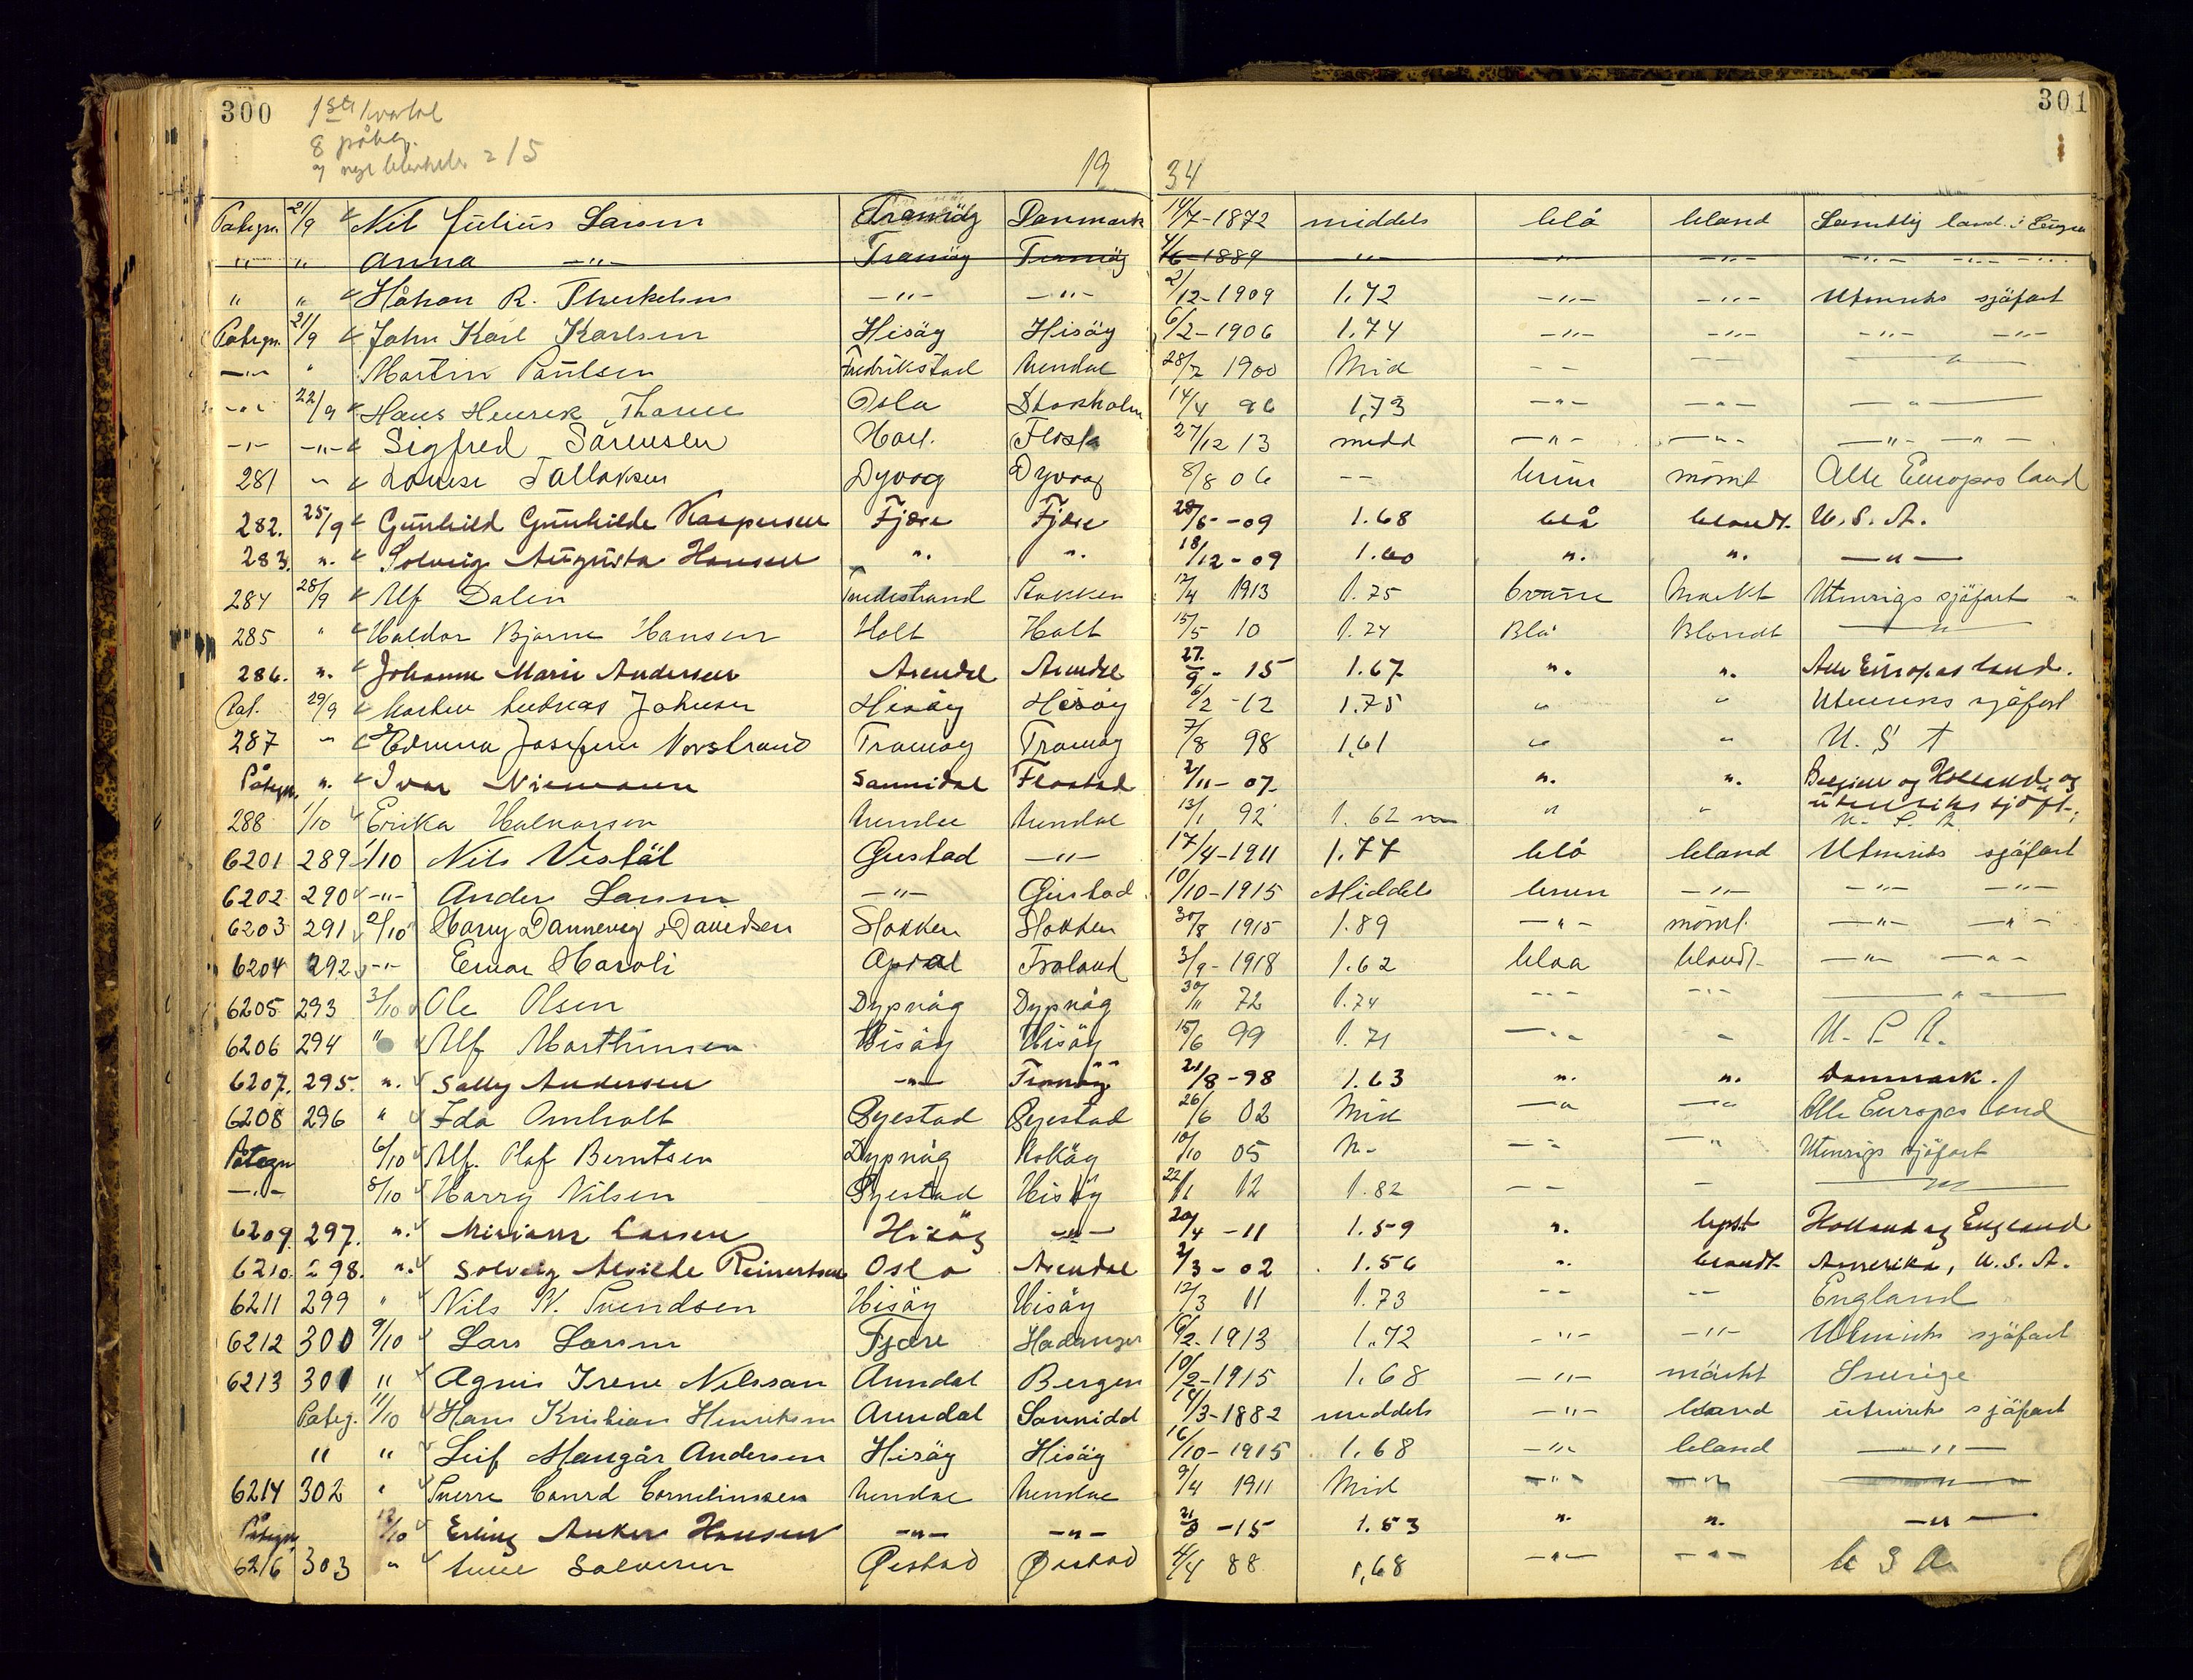 300 301
1ste kvartal
8 påteg.
7 nye = 15
19 34
Pategn. 21/9 Nils Julius Larsen Tromöy Danmark 14/7-1872 middels blå bland Samtlig land. i Europa
" " Anna —"— Tromöy Tromöy 4/6-1889 —"— —"— —"— —"— —"—
" " Håkon R. Therkelsen —"— —"— 2/12-1909 1.72 —"— —"— Utenriks sjöfart
Pategn. 21/9 John Karl Karlsen Hisöy Hisöy 6/2-1906 1.74 —"— —"— —"— —"—
—"— " Martin Paulsen Fredrikstad Arendal 28/7 1900 Mid — — — — —"—
—"— 22/9 Hans Henrik Thorne Oslo Stokholm 14/4 96 1,73 —"— —"— —"—
—"— —"— Sigfred Sörensen Flosta 27/12 13 midd —"— —"— —"— —"—
281 " Louise Tallaksen Dyvåg Dyvåg 8/8 06 — — brun mörkt Alle Europas land
282. 25/9 Gunhild Gunhilde Kaspersen Fjære Fjære 28/5-09 1.68 blå blondt. U.S.A.
283. ". Solveig Augusta Hansen ". ". 18/12-09 1.60 ". ". —"—
284 28/9 Alf Dalen Tvedestrand Stokken 12/4 1913 1.75 brune Mørkt Utenrigs sjöfart
285 " Haldor Bjarne Hansen Holt Holt 15/5 10 1.74 Blå Blondt —"—
286. ". Johanne Marie Andersen Arendal Arendal 27./9-15 1.67 ". ". Alle Europas lande.
Pat. 29/9 Andreas Johnsen Hisöy Hisöy 6/2-12 1.75 " " Utenriks sjöfart
287 " Edruna Josefine Norstrand Tromöy Tromöy 7/8 98 1,61 " " U. S A
Påtegn. ". Ivar Niemann Sannidal Flostad 2/11-07. ". ". Belgien og Holland og
utenriks sjöft.;
288 1/10 Erika Halvorsen Arendal Arendal 13/1 92 1.62 " " U. S. A.
6201 289 1/10 Nils Vestöl Gjerstad —"— 17/4-1911 1.77 blå bland Utenriks sjöfart
6202 290 —"— Anders Larsen —"— Gjerstad 10/10-1915 Middels brun —"— —"— —"—
6203 291 2/10 Harry Dannevig Davidsen Stokken Stokken 30/8 1915 1.89 —"— mörkt. —"— —"—
6204 292 —"— Einar Haroli Froland 3/9-1918 1.62 blaa blondt —"— —"—
6205 293 3/10 Ole Olsen Dypvåg Dypvåg 30/11 72 1.74 —"— —"— —"—
6206 294 " Alf Marthinsen Hisöy Hisöy 15/6 99 1.71 —"— " U. S. A.
6207. 295. ". Sally Andersen —"— Tromöy 21/8-98 1.63 ". ". Danmark.
6208 296 " Ida Omholt Øyestad Øyestad 26/6 02 Mid —"— —"— Alle Europas land
Påtegn 6/10 Alf. Olof Berntsen Dypvåg 10/10 05 M- —"— —"— Utenrigs sjöfart
—"— 8/10 Harry Nilsen Øyestad Hisöy 22/1 12 1.82 — — — —"—
6209. 297. ". Miriam Larsen Hisöy —"— 20/4-11 1.59 ". lyst Holland og England
6210. 298. ". Solveig Alvilde Reinertsen Oslo Arendal 2/3-02 1.56 ". blondt Amerika, U.S.A.
6211 299 " Nils N. Svendsen Hisöy Hisöy 12/3 11 1.73 — — — — England
6212 300 9/10 Lars Larsen Fjære Hadanger 6/2-1913 1,72 —"— —"— Utenriks sjöfart
6213 301 " Agnes Irene Nilssen Arendal Bergen 10/2-1915 1.68 —"— mörkt Sverige
Pateg. 11/10 Hans Kristian Henriksen Arendal Sannidal 14/3-1882 middels —"— bland utenriks sjöfart
" " Leif Mangår Andersen Hisöy Hisöy 16/10-1915 1.68 —"— bland —"—
6214 302 " Sverre Conrd Corneliussen Arendal Arendal 9/4 1911 Mid —"— —"— —"—
Påtegn 12/10 Erling Anker Hansen —"— —"— 21/8-15 1.53 ". ". —"—
6216 303 " Anne Salvesen Øiestad Øiestad 4/4 88 1,68 —"— —"— U S A